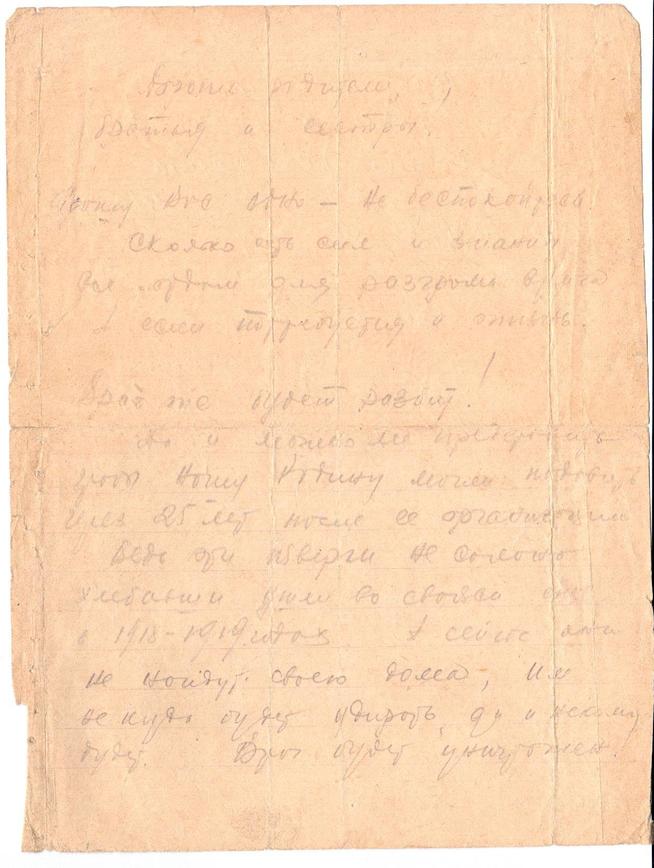 Дорогие родители,
братья и сестры.
Прошу Вас одно — не беспокойтесь.
Сколько есть сил и знаний
все отдам для разгрома врага
А если потребуется и жизнь.
Враг же будет разбит!
Да и можно ли представить
чтобы Нашу Родину могли подавить
через 25 лет после ее организации
Ведь эти изверги не солоно
хлебавши ушли во свояси
в 1918-1919 годах. А сейчас они
не найдут своего дома, Им
не куда будет удирать, да и некому
будет. Враг будет уничтожен.